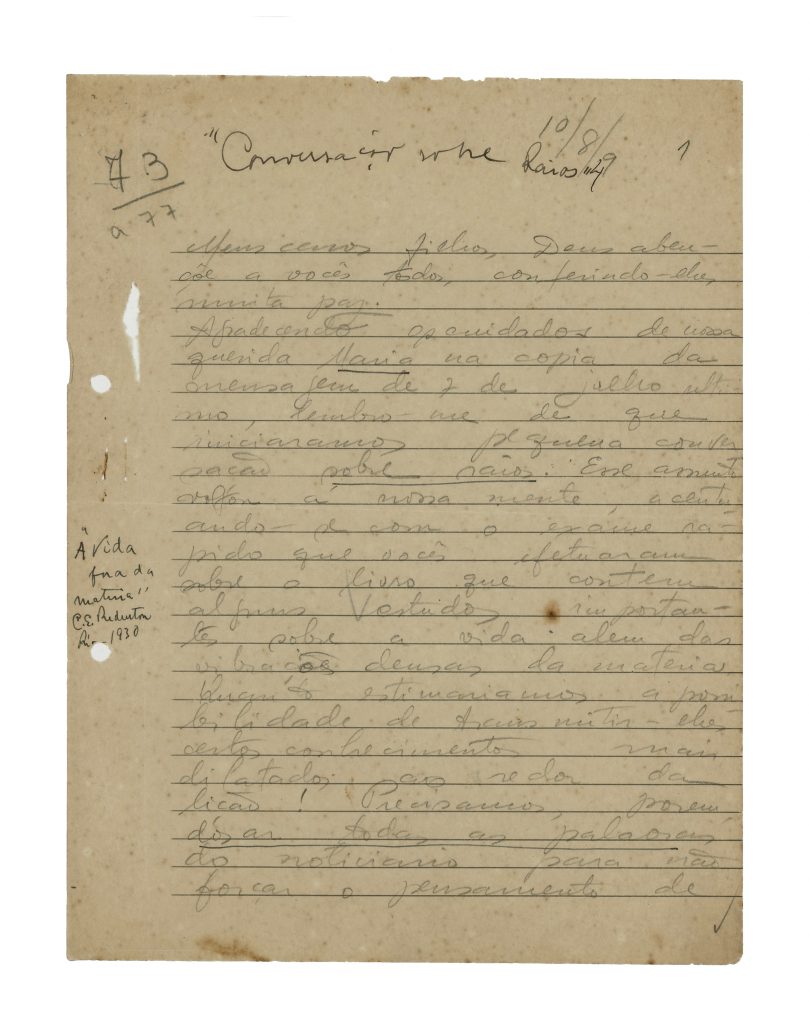 10/8/49
73
a 77
"Conversação sobre Raios"
1
Meus caros filhos, Deus aben-
çõe a vocês todos, conferindo-lhes
muita paz.
Agradecendo os cuidados de nossa
querida Maria na copia da
mensagem de 7 de julho ulti-
mo, lembro-me de que
iniciaramos pequena conver
sação sobre raios. Esse assunto
voltou á nossa mente, acentu
ando-se com o exame ra-
pido que vocês efetuaram
sobre o livro que contem
alguns estudos importan-
tes sobre a vida alem das
vibrações densas da materia.
Quanto estimariamos a possi
bilidade de transmitir-lhes
certos conhecimentos mais
dilatados ao redor da
lição! Precisamos, porem,
dosar todas as palavras
do noticiario para não
forçar o pensamento de
"A Vida
fora da
materia"
Rio-1930